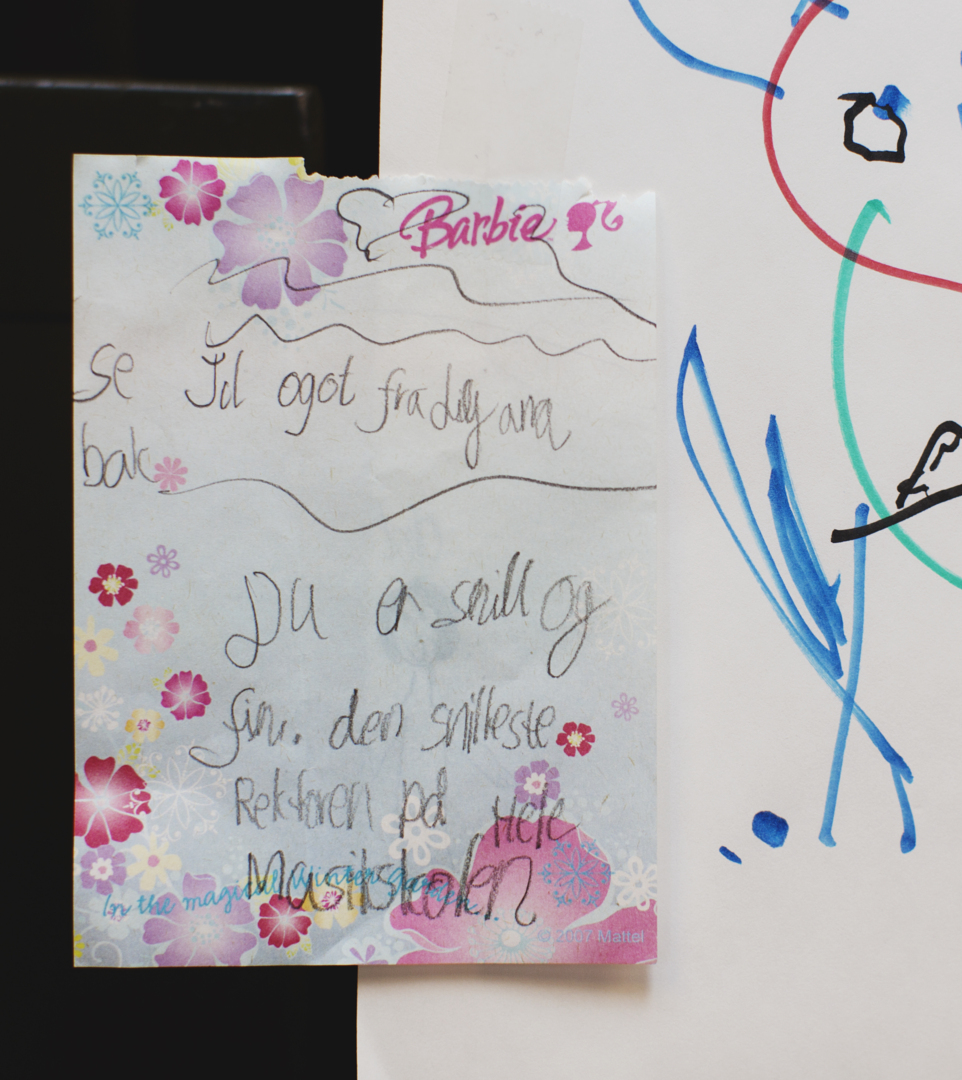 Barbie
Se
bak
Til ogot fra Lilly ana
Du er snill og
fin. den snilleste
Rektoren på Hele
Musikskolen
In the magical Winter Garden...
© 2007 Mattel